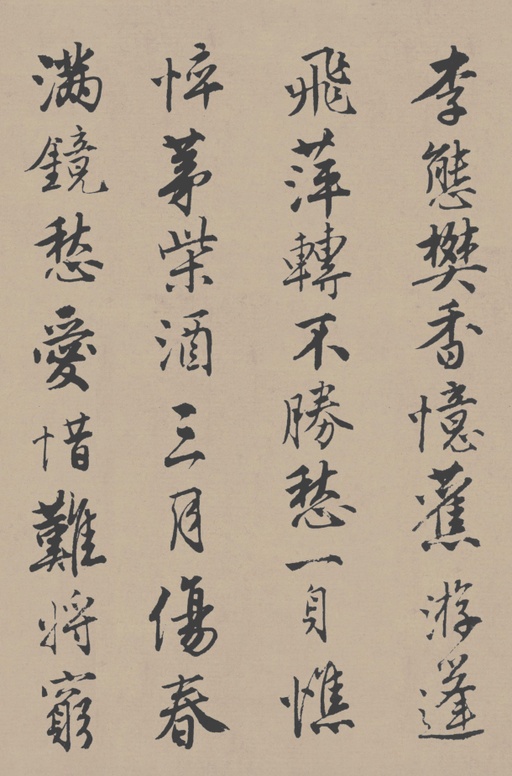 李態樊香憶舊游蓬
飛萍轉不勝愁一身憔
悴茅柴酒三月傷春
滿鏡愁愛惜難將窮